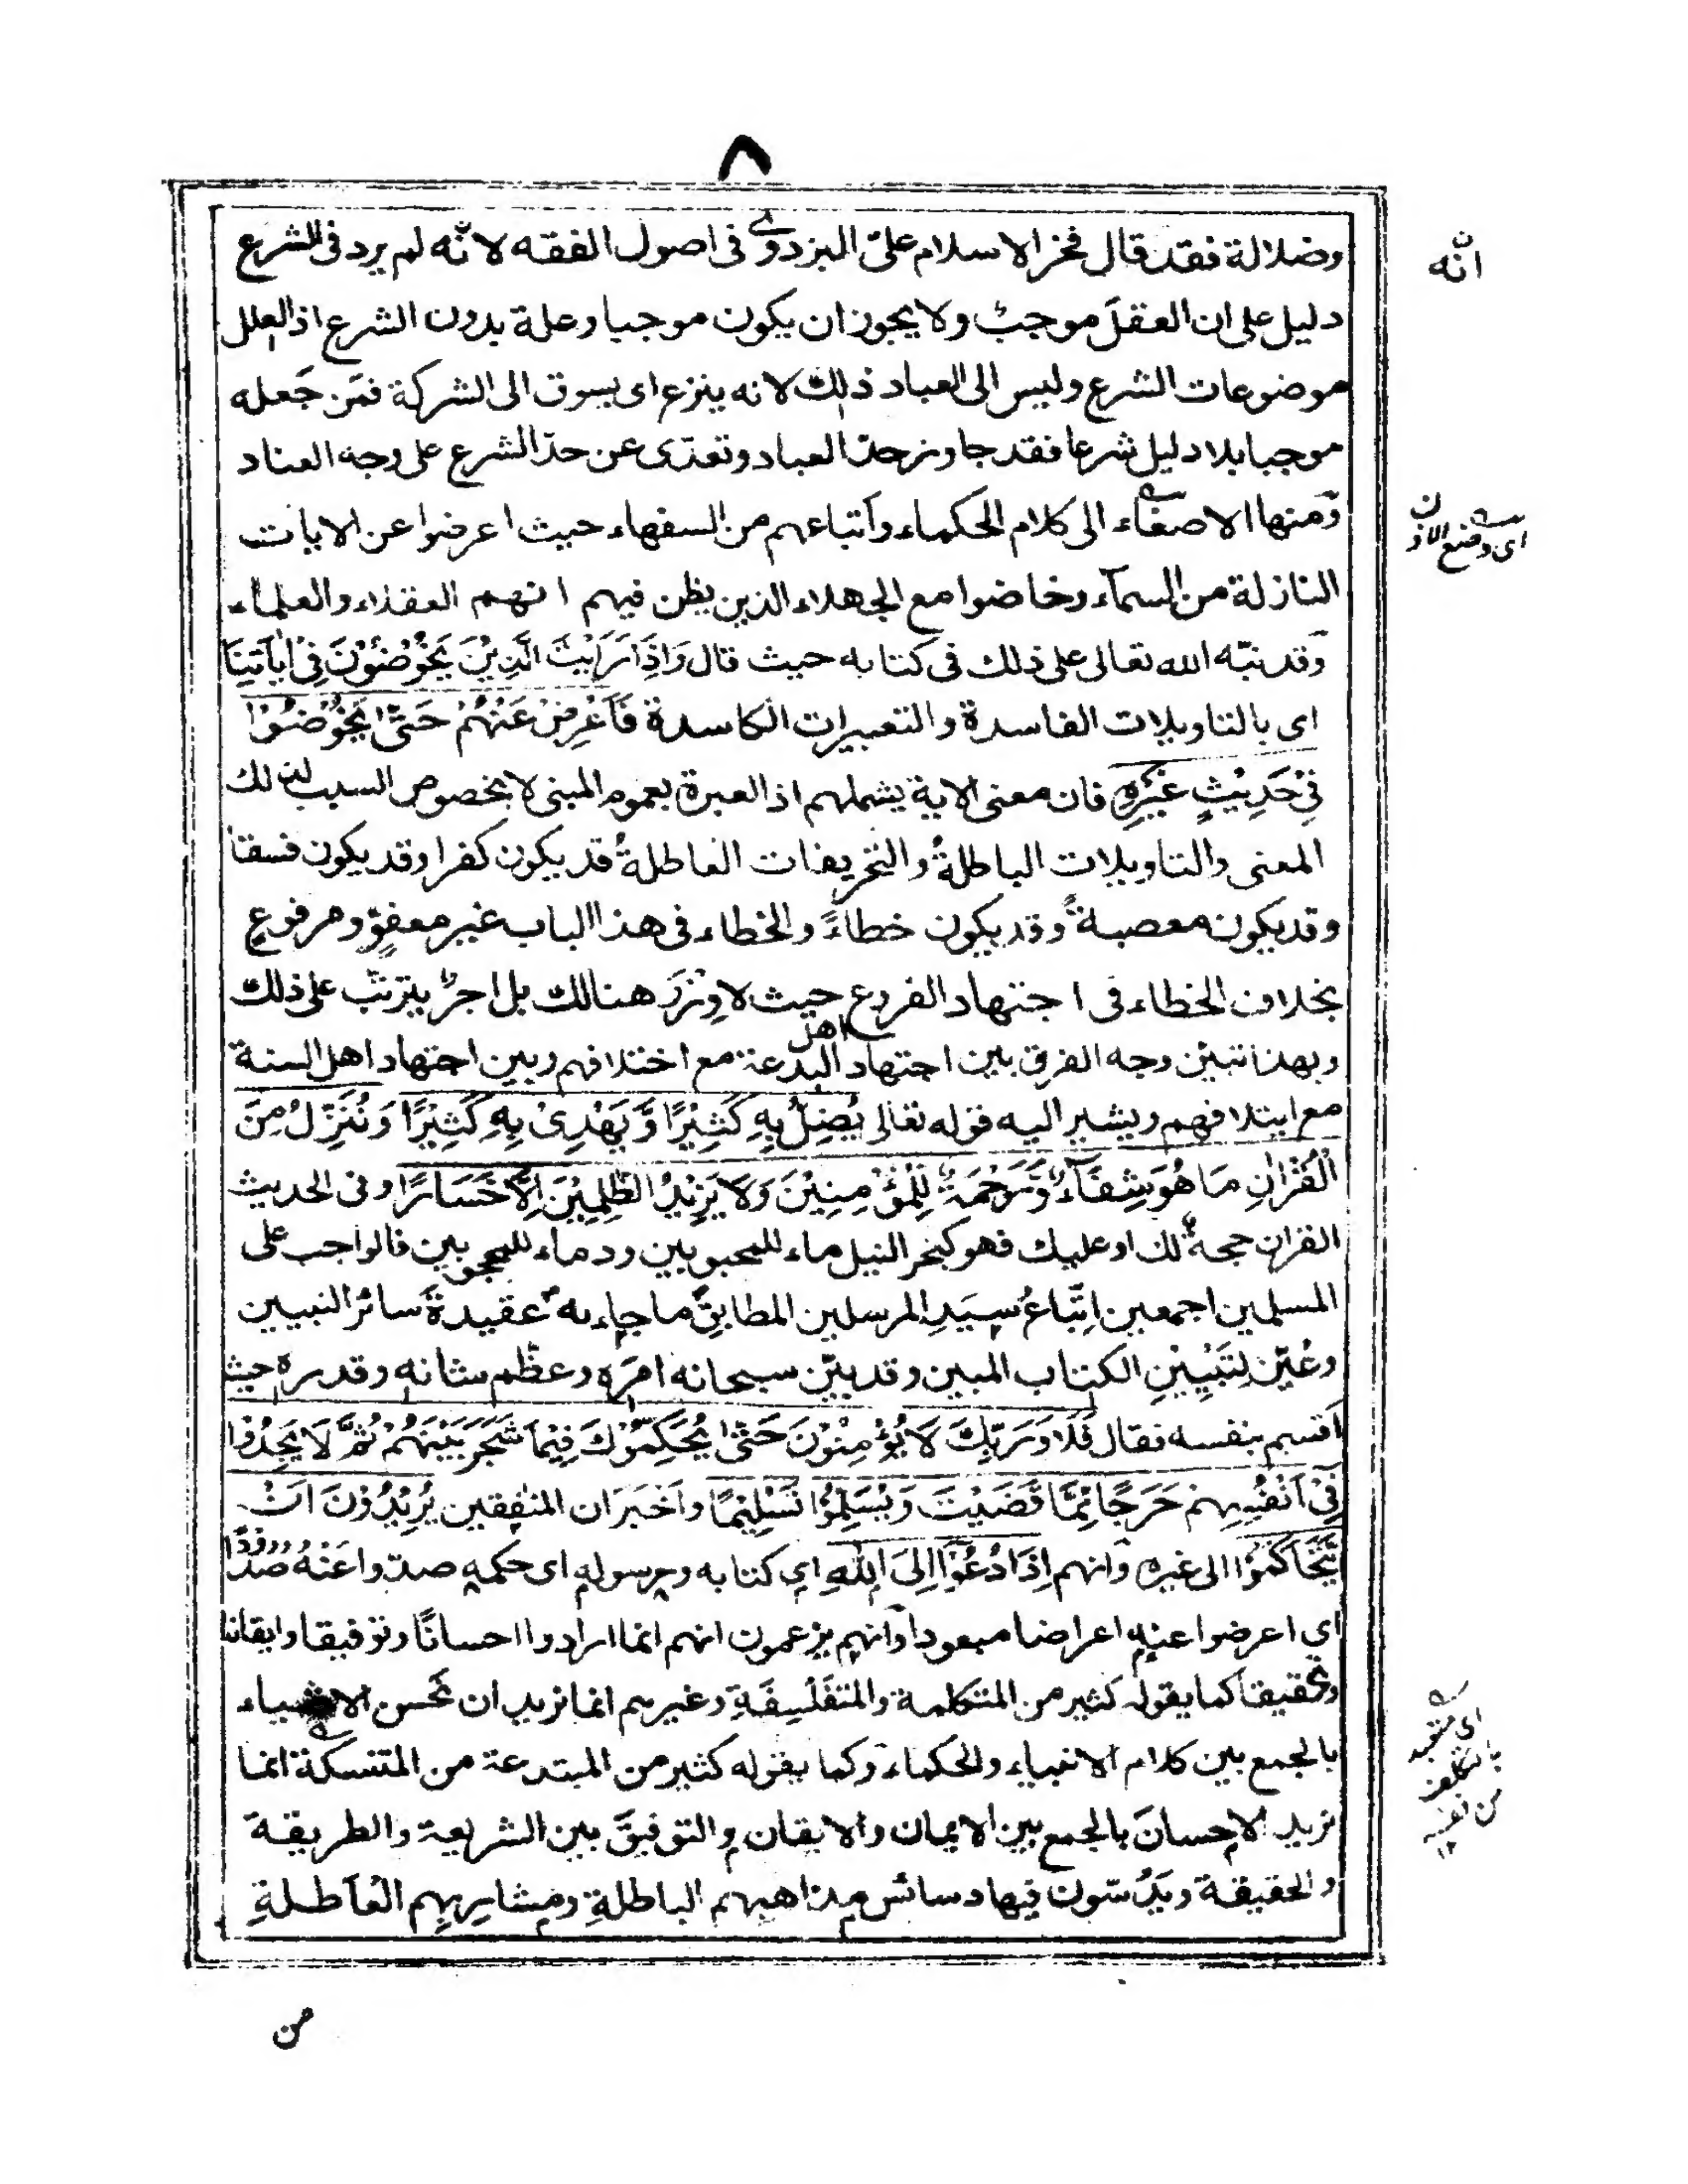 ٨
وضلالة فقد قال فخر الاسلام علىّ البزدوى فى اصول الفقه لانّه لم يرد فى الشرع
انّه
دليل على ان العقلَ موجبٌ ولا يجوز ان يكون موجبا وعلة بدون الشرع اذ العلل
موضوعات الشرع وليس الى العباد ذلك لانه ينزع اى يسوق الى الشركة فمَن جَعله
موجبا بلا دليل شرعا فقد جاوز حدّ العباد وتعدّى عن حدّ الشرع على وجه العناد
ومنها الاصغاء الى كلام الحكماء واتباعهم من السفهاء حيث اعرضوا عن الايات
اى وضع الاذن
النازلة من السمآء وخاضوا مع الجهلاء الذين يظن فيهم انهم العقلاء والعلماء
وقد نبّه الله تعالى على ذلك فى كتابه حيث قال وَاِذَا رَاَيْتَ الَّذِيْنَ يَخُوْضُوْنَ فِىْ اٰيَاتِنَا
اى بالتاويلات الفاسدة والتعبيرات الكاسدة فَاَعْرِضْ عَنْهُمْ حَتّٰى يَخُوْضُوْا
فِىْ حَدِيْثٍ غَيْرِهٖ فان معنى الاية يشملهم اذ العبرة بعموم المبنى لا بخصوص السبب لذلك
المعنى والتاويلات الباطلةُ والتحريفات العاطلةُ قد يكون كفرا وقد يكون فسقا
وقد يكون معصيةً وقد يكون خطاءً والخطاء فى هذا الباب غير معفوٍّ ومرفوع
بخلاف الخطاء فى اجتهاد الفروع حيث لا وِزْرَ هنالك بل اجرٌ يترتّب على ذلك
وبهذا تبيّن وجه الفرق بين اجتهاد اهل البدعة مع اختلافهم وبين اجتهاد اهل السنة
مع ابتلافهم ويشير اليه قوله تعالى يُضِلُّ بِهٖ كَثِيْرًا وَّيَهْدِىْ بِهٖ كَثِيْرًا وَنُنَزِّلُ مِنَ
الْقُرْاٰنِ مَا هُوَ شِفَآءٌ وَّرَحْمَةٌ لِّلْمُؤْمِنِيْنَ وَلَا يَزِيْدُ الظّٰلِمِيْنَ اِلَّا خَسَارًا وفى الحديث
القران حجةٌ لك او عليك فهو كبحر النيل ماء للمحبوبين ودماء للمحجوبين فالواجب على
المسلمين اجمعين اتّباعُ سيّدِ المرسلين المطابقِ ما جاء به عقيدةَ سائر النبيين
وعُيّن لِتَبْيِيْنِ الكتاب المبين وقد بيّن سبحانه امرَه وعظّم شانه وقدره حيث
اقسم بنفسه فقال فَلَا وَرَبِّكَ لَا يُؤْمِنُوْنَ حَتّٰى يُحَكِّمُوْكَ فِيْمَا شَجَرَ بَيْنَهُمْ ثُمَّ لَا يَجِدُوْا
فِىْ اَنْفُسِهِمْ حَرَجًا مِّمَّا قَضَيْتَ وَيُسَلِّمُوْا تَسْلِيْمًا واَخبَر ان المنٰفقين يُرِيْدُوْنَ اَنْ
يَّتَحَاكَمُوْا الى غيره وانهم اِذَا دُعُوْٓا اِلَى اللهِ اى كتابه ورسوله اى حكمه صدّوا عَنْهُ صُدُوْدًا
اى اعرضوا عنه اعراضا مبعودا وانهم يزعمون انهم انما ارادوا احسانًا وتوفيقا وايقانا
وتحقيقا كما يقوله كثير من المتكلمة والمتفَلْسِفَةِ وغيرهم انما نريد ان نحسن الاشياء
بالجمع بين كلام الانبياء والحكماء وكما يقوله كثير من المبتدعة من المتنسكة انما
نريد الاحسانَ بالجمع بين الايمان والايقان والتوفيقَ بين الشريعة والطريقة
والحقيقة ويَدُسّون فيها دسائس مذاهبهم الباطلةِ ومشاربهم العاطلةِ
من